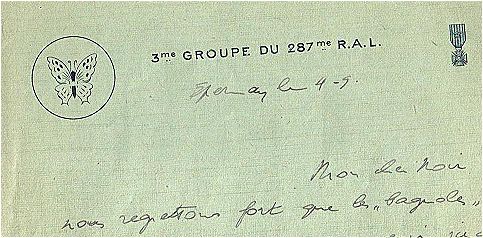 3me GROUPE DU 287me R.A.L.
Epernay le 4-9.
Mon cher Noir
nous regrettons fort que les „bagnoles"